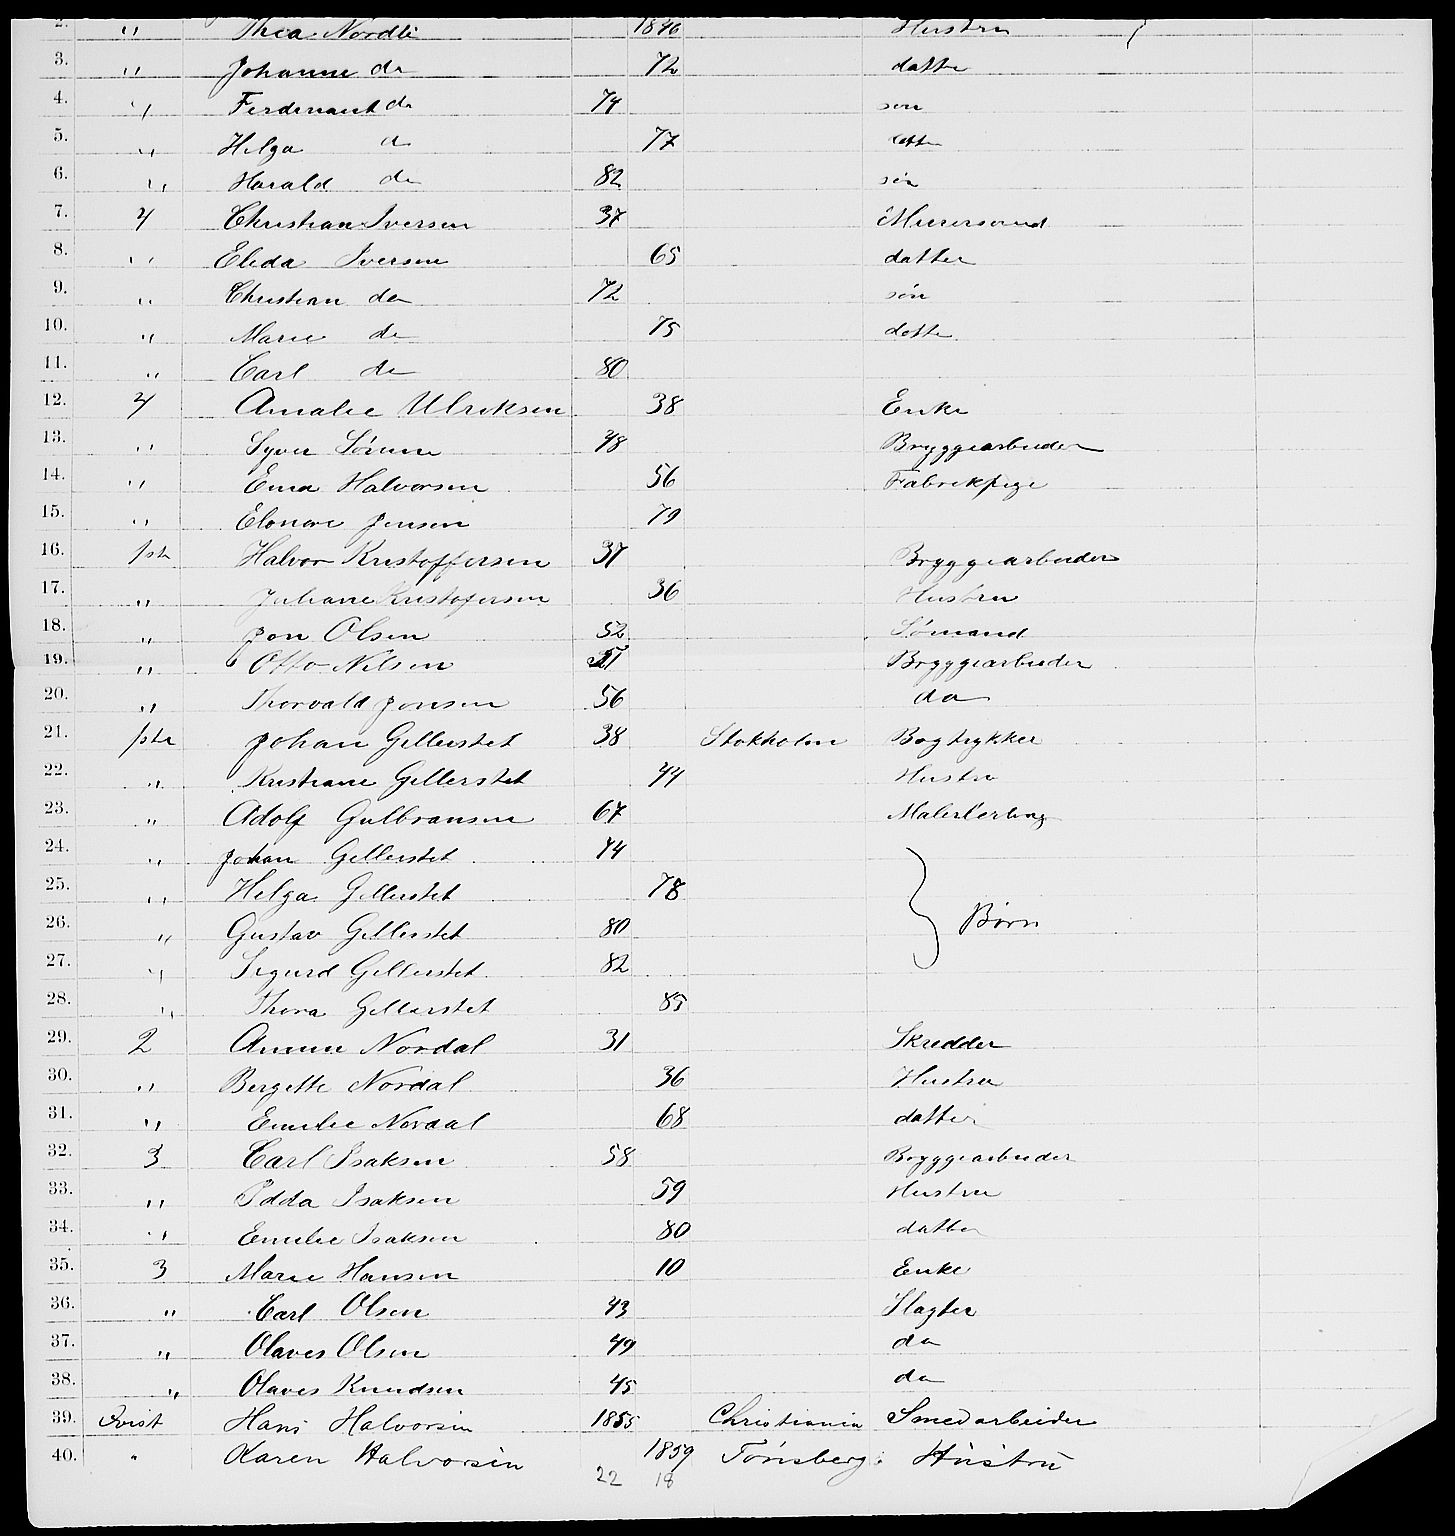 2. " Thea Nordli 1846 Hustru
3. " Johanne do 72 datter
4. " Ferdinant do 74 søn
5. " Helga do 77 datter
6. " Harald do 82 søn
7. 4 Christian Iversen 37 Murersvend
8. " Elida Iversen 65 datter
9. " Christian do 72 søn
10. " Marie do 75 datter
11. " Carl do 80
12. 4 Amalie Ulriksen 38 Enke
13. " Syver 48 Bryggearbeider
14. " Ema Halvorsen 56 Fabrikpige
15. " Elonore Jensen 79
16. 1ste Halvor Kristoffersen 37 Bryggearbeider
17. " Juliane Kristofersen 36 Hustru
18. " Jon Olsen 52 Sømand
19. " Otto Nilsen Bryggearbeider
20. " Thorvald Jonsen 56 do
21. 1ste Johan Gellerstet 38 Stokholm Bogtrykker
22. " Kristiane Gellerstet 44 Hustru
23. " Adolf Gulbransen 67 Malerlerling
24. " Johan Gellerstet 74
25. " Helga Gellerstet 78
26. " Gustav Gellerstet 80 } Børn
27. " Sigurd Gellerstet 82
28. " Thora Gellerstet 85
29. 2 Amun Nordal 31 Skredder
30. " Bergette Nordal 36 Hustru
31. " Emilie Nordal 68 datter
32. 3 Carl Isaksen 58 Bryggearbeider
33. " Edda Isaksen 59 Hustru
34. " Emilie Isaksen 80 datter
35. 3 Marie Hansen 10 Enke
36. " Carl Olsen 43 Slagter
37. " Olaves Olsen 49 do
38. " Olaves Knudsen 45 do
39. Qvist Hans Halvorsen 1855 Christiania Smedarbeider
40. " Karen Halvorsen 1859 Tønsberg Hustru
22 18